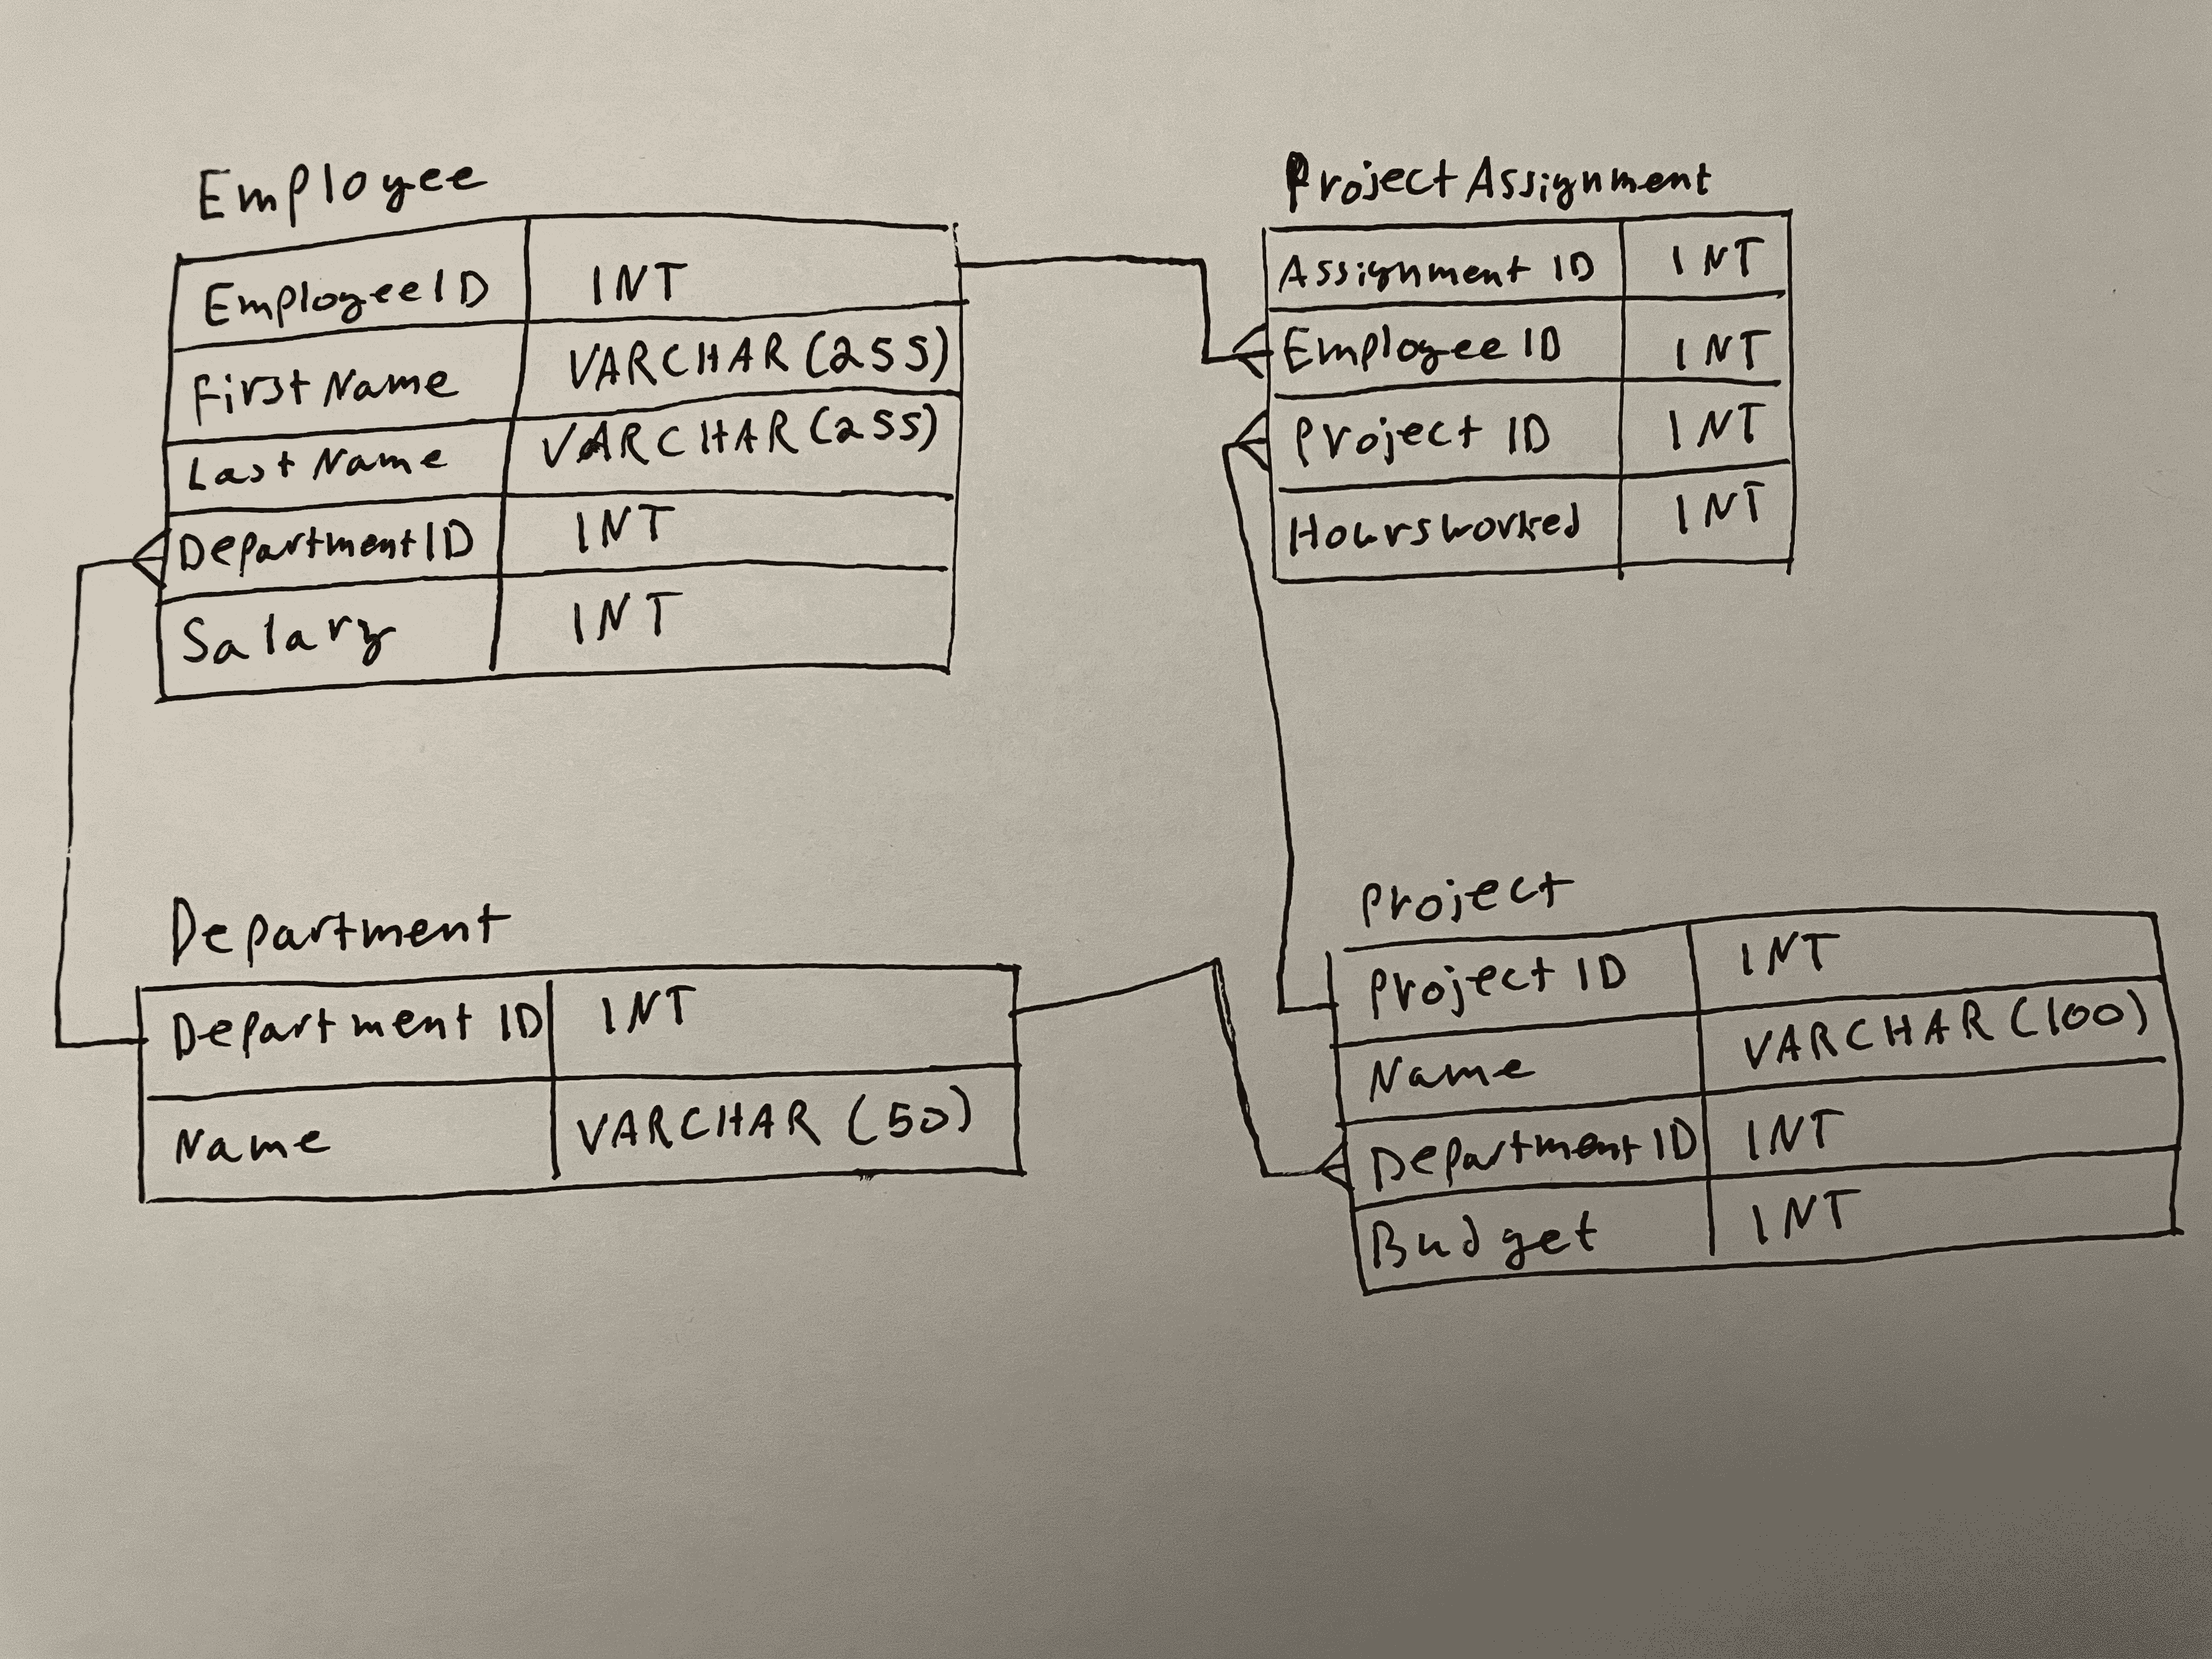 Employee
EmployeeID INT
FirstName VARCHAR(255)
LastName VARCHAR(255)
DepartmentID INT
Salary INT
ProjectAssignment
Assignment ID INT
Employee ID INT
Project ID INT
Hoursworked INT
Department
Department ID INT
Name VARCHAR (50)
Project
Project ID INT
Name VARCHAR(100)
Department ID INT
Budget INT